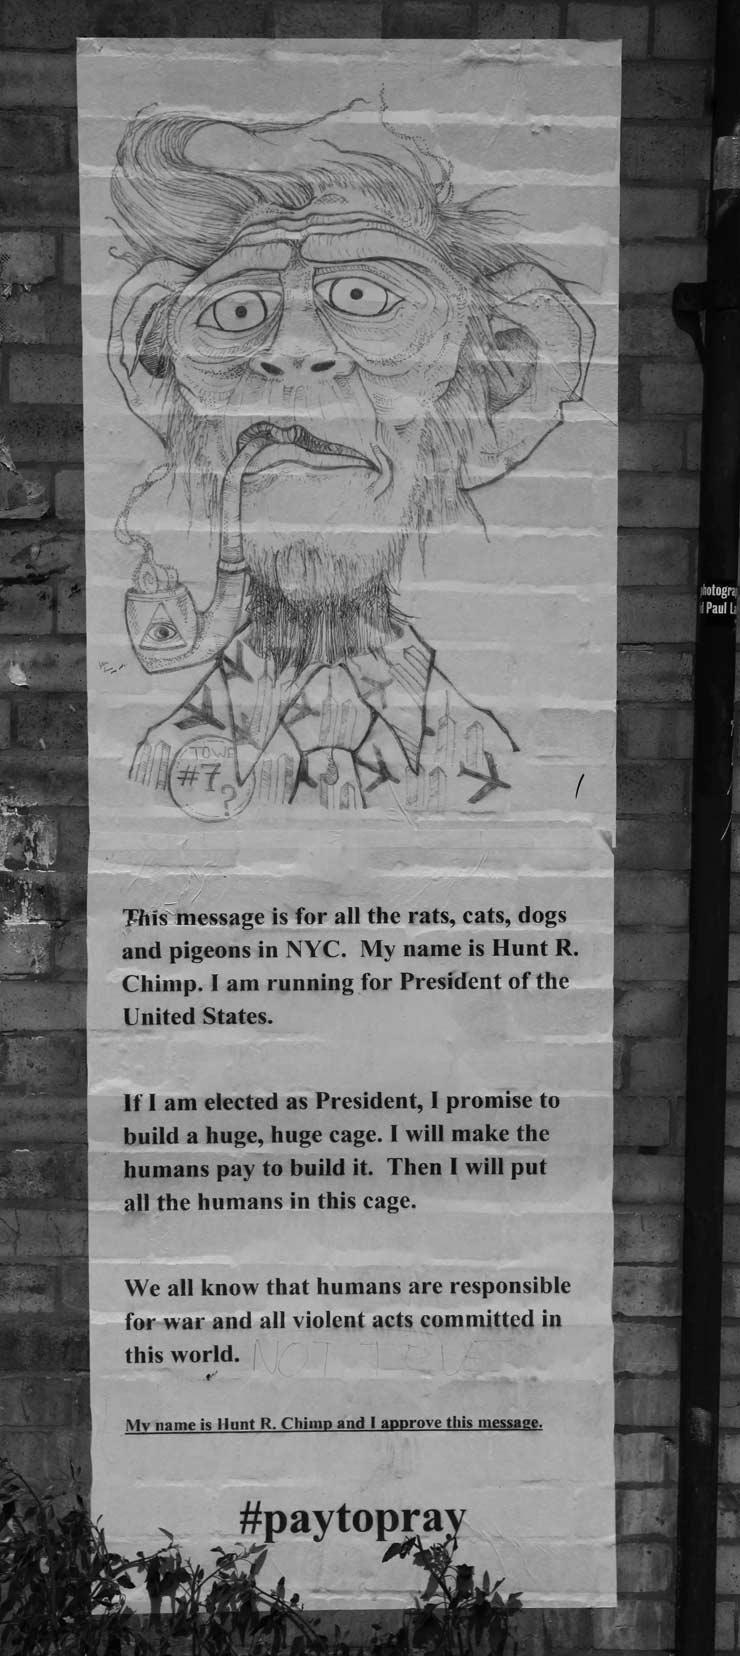 #7
?
photogra
Paul
This message is for all the rats, cats, dogs
and pigeons in NYC. My name is Hunt R.
Chimp. I am running for President of the
United States.
If I am elected as President, I promise to
build a huge, huge cage. I will make the
humans pay to build it. Then I will put
all the humans in this cage.
We all know that humans are responsible
for war and all violent acts committed in
this world. NOT TRUE
My name is Hunt R. Chimp and I approve this message.
#paytopray